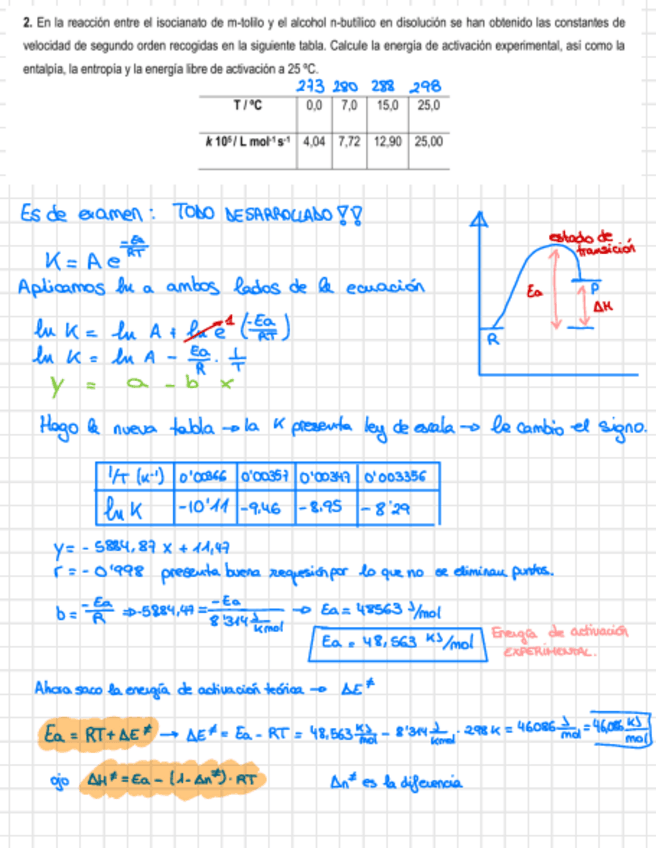 2. En la reacción entre el isocianato de m-tolilo y el alcohol n-butílico en disolución se han obtenido las constantes de
velocidad de segundo orden recogidas en la siguiente tabla. Calcule la energía de activación experimental, así como la
entalpía, la entropía y la energía libre de activación a 25 ºC.
273 280 288 298
T / ºC 0,0 7,0 15,0 25,0
k 10⁵/ L mol⁻¹ s⁻¹ 4,04 7,72 12,90 25,00
Es de examen: TODO DESARROLLADO !!
K = A e^(-Ea/RT)
Aplicamos ln a ambos lados de la ecuación
ln K = ln A + ln e¹ (-Ea/RT)
ln K = ln A - Ea/R · 1/T
y = a - b x
estado de
transición
Ea
P
ΔH
R
Hago la nueva tabla → la K presenta ley de escala → le cambio el signo.
1/T (K⁻¹) 0'00366 0'00357 0'00347 0'003356
ln K -10'11 -9,46 -8,95 -8'29
y = - 5884,87 x + 11,47
r = - 0'998 presenta buena regresión por lo que no se eliminan puntos.
b = -Ea/R ⇒ -5884,47 = -Ea/8'314 J/Kmol → Ea = 48563 J/mol
Ea = 48,563 KJ/mol
Energía de activación
EXPERIMENTAL.
Ahora saco la energía de activación teórica → ΔE≠
Ea = RT + ΔE≠ → ΔE≠ = Ea - RT = 48,563 KJ/mol - 8'314 J/Kmol · 298 K = 46086 J/mol = 46,086 KJ/mol
ojo ΔH≠ = Ea - (1 - Δn≠) · RT Δn≠ es la diferencia